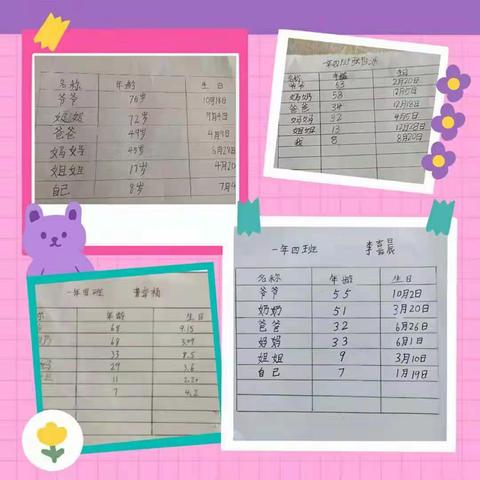 名称 年龄 生日
爷爷 76岁 10月18日
奶奶 72岁 7月4日
爸爸 49岁 4月9日
妈妈 45岁
姐姐 17岁 4月20
自己 8岁 7月4
名称 年龄 生日
爷爷 63 2月20日
奶奶 58 12月5日
爸爸 34 12月18日
妈妈 32 4月5日
姐姐 13
我 8 8月20日
一年四班
年龄 生日
68 9.15
68 3.09
33 8.5
29 3.6
11 2.20
7 4.2
一年四班 李嘉晨
名称 年龄 生日
爷爷 55 10月2日
奶奶 51 3月20日
爸爸 32 6月26日
妈妈 33 6月1日
姐姐 9 3月10日
自己 7 1月19日